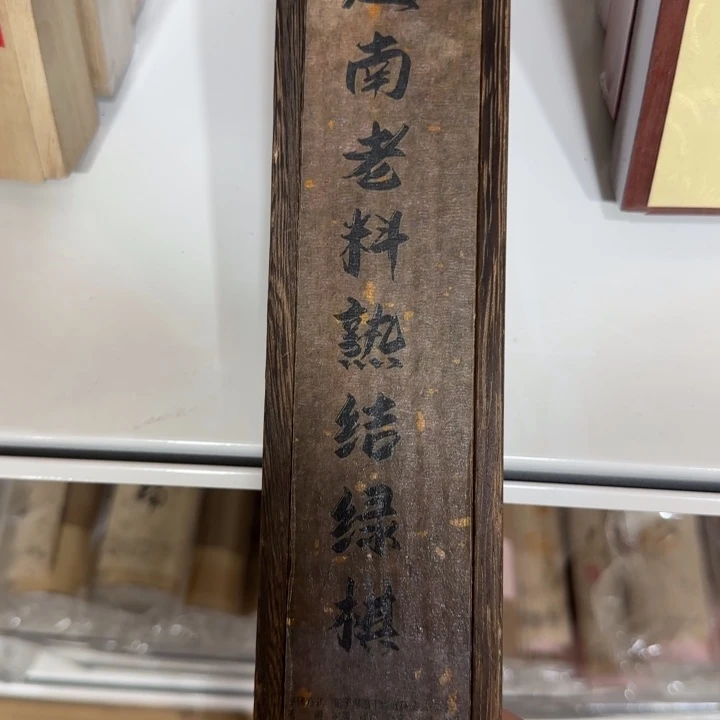 南老料熟结绿棋